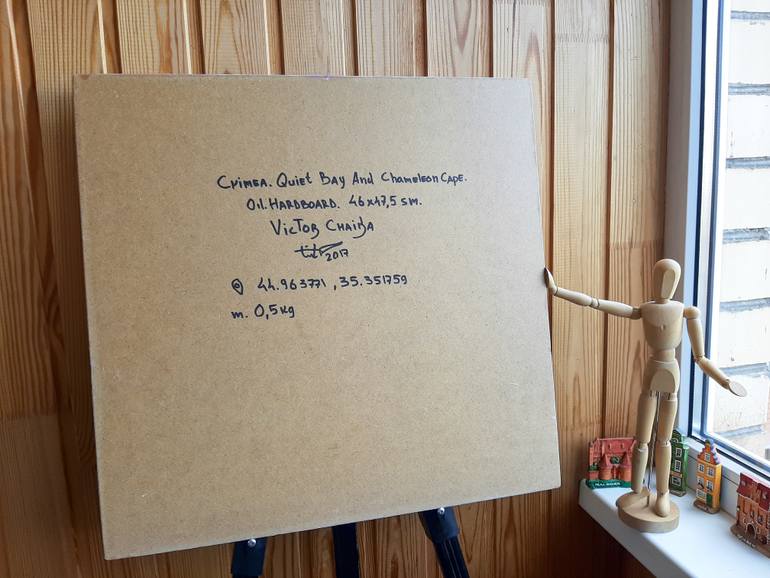 Crimea. Quiet Bay And Chameleon Cape.
Oil. Hardboard. 46x47,5 sm.
Victor Chaika
2017
44.963771, 35.351759
m. 0,5kg